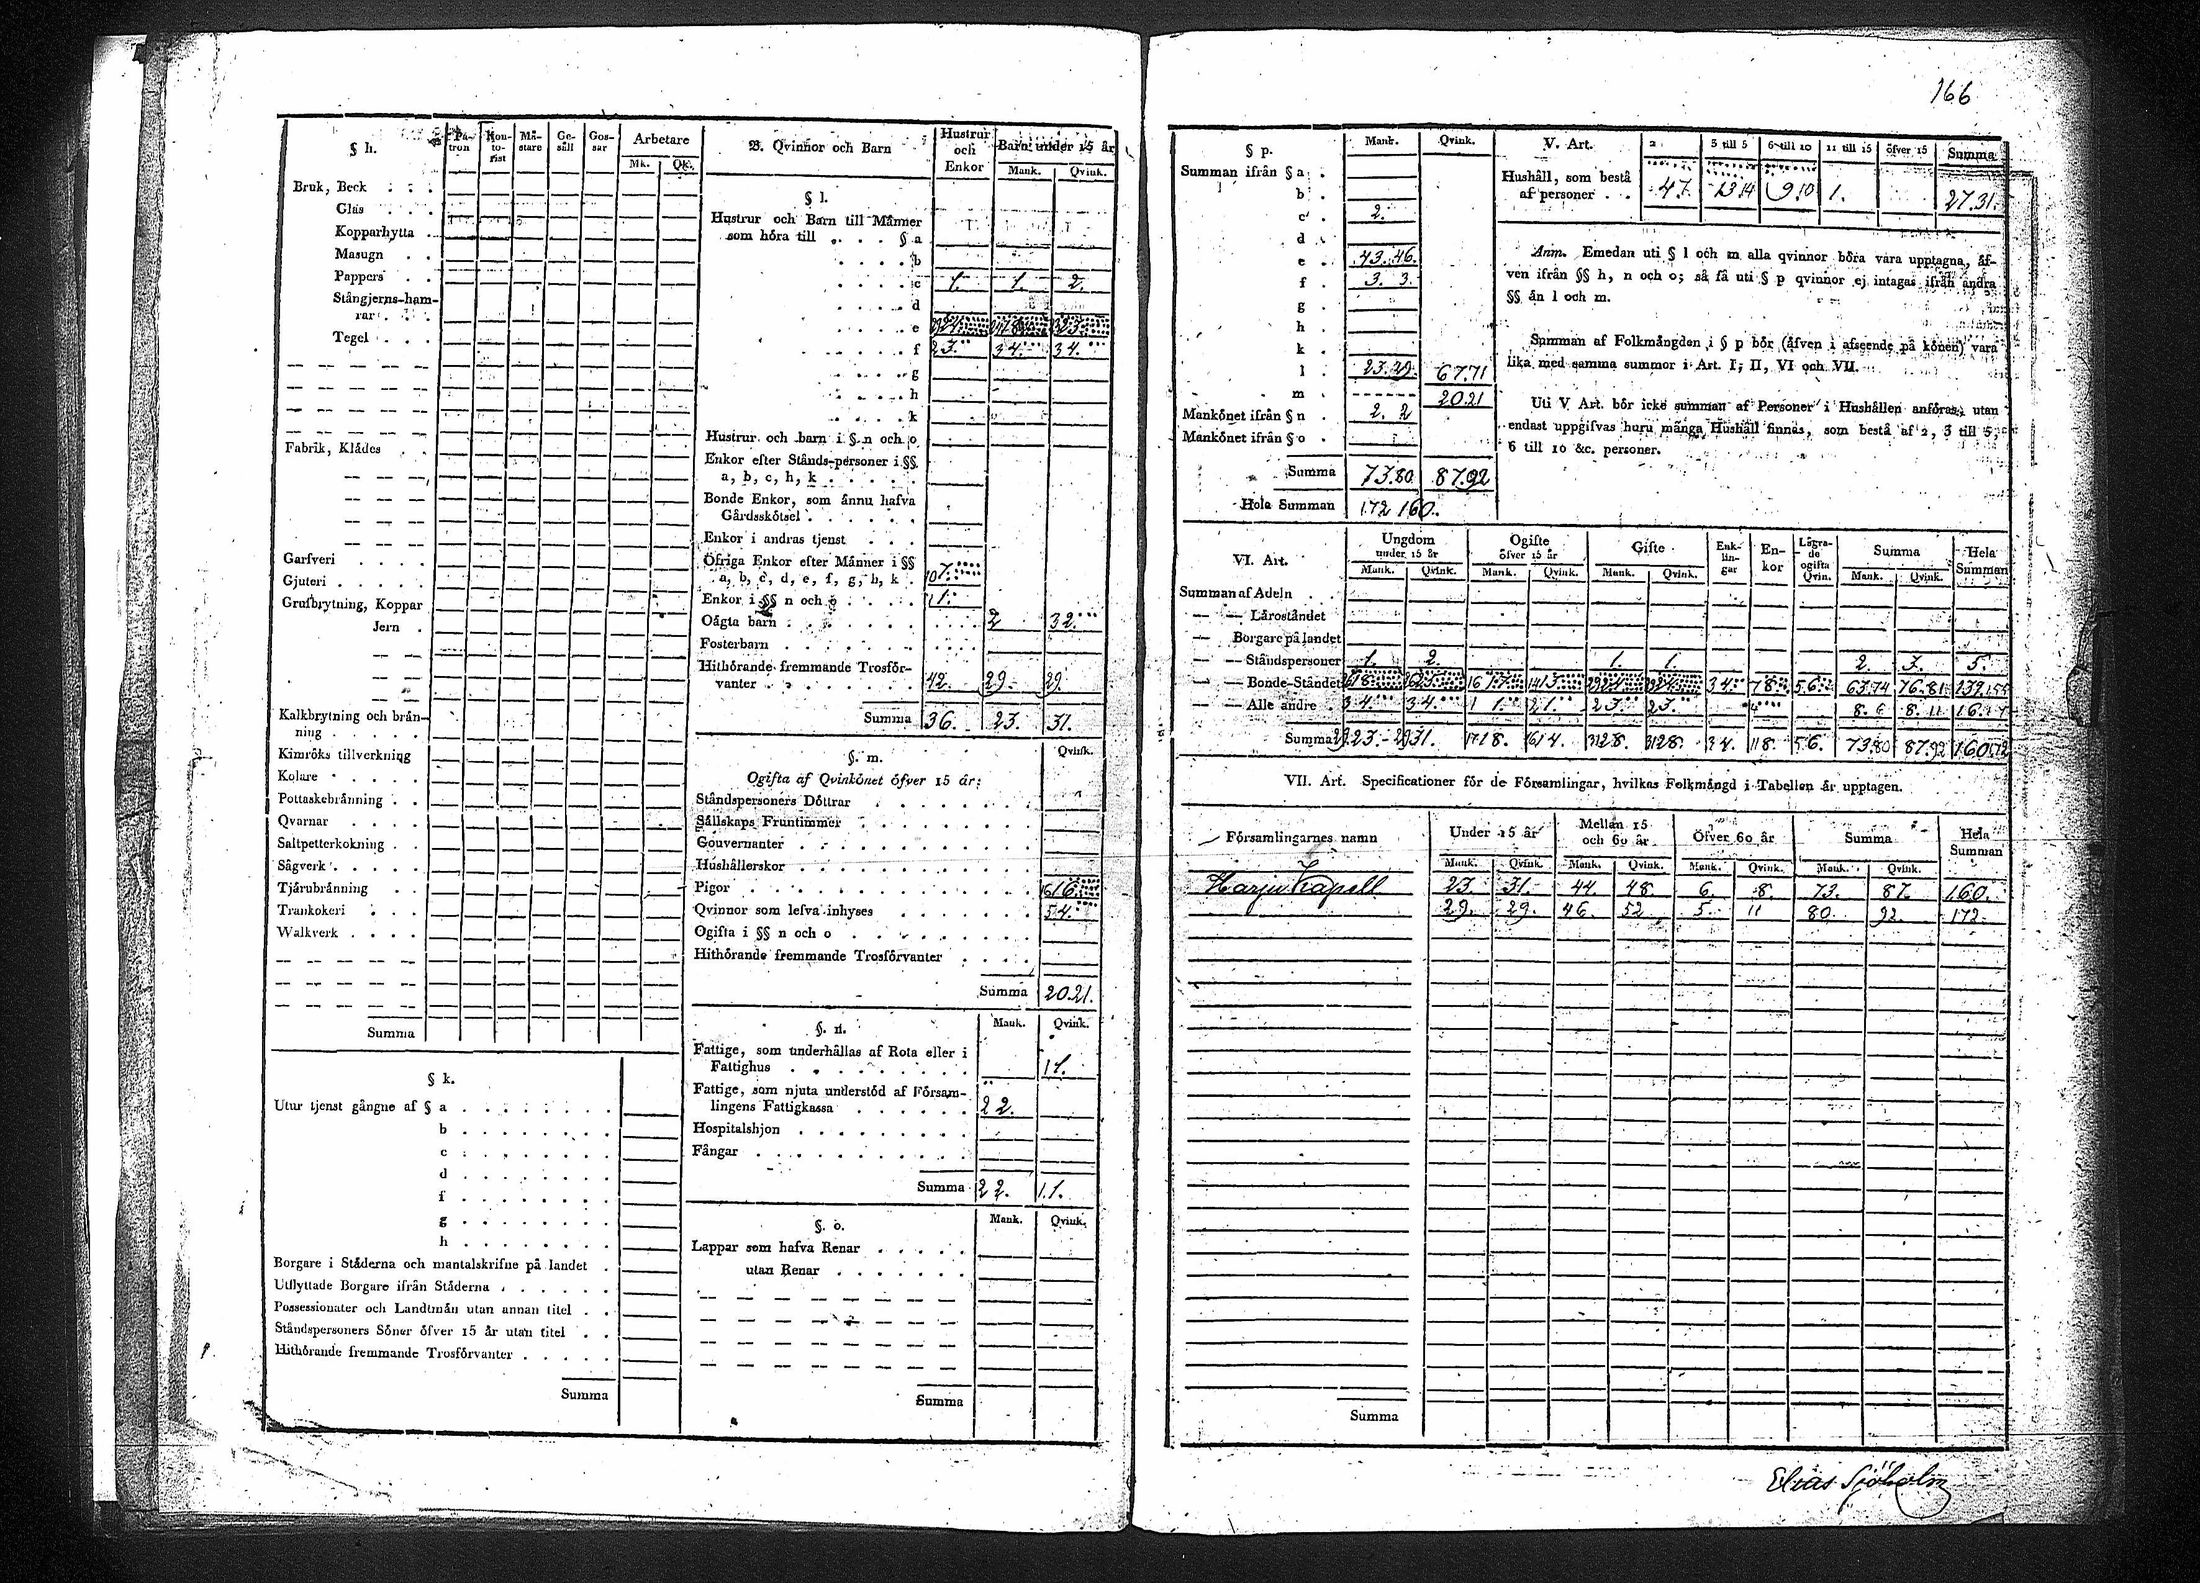 166
§ h.
Pa-tron Kon-to-rist Må-stare Ge-säll Gos-sar Arbetare
Mk. Qk.
Bruk, Beck . . .
Glas . . .
Kopparhytta .
Masugn . .
Pappers . .
Stångjerns-ham-
rar . . .
Tegel . . .
Fabrik, Klådes . .
Garfveri . . . .
Gjuteri . . . . .
Grufbrytning, Koppar
Jern .
Kalkbrytning och brån-
ning . . . . .
Kimröks tillverkning
Kolare . . . . .
Pottaskebrånning . .
Qvarnar . . . .
Saltpetterkokning . .
Sågverk . . . . .
Tjärubrånning . .
Trankokeri . . .
Walkverk . . . .
Summa
§ k.
Utur tjenst gångne af § a . . . . . . .
b . . . . . . .
c . . . . . . .
d . . . . . . .
f . . . . . . .
g . . . . . . .
h . . . . . . .
Borgare i Ståderna och mantalskrifne på landet .
Utflyttade Borgare ifrån Ståderna . . . . . .
Possessionater och Landtmån utan annan titel . .
Ståndspersoners Söner öfver 15 år utan titel . .
Hithörande fremmande Trosförvanter . . . . .
Summa
B. Qvinnor och Barn
Hustrur och Enkor Barn under 15 år
Mank. Qvink.
§ l.
Hustrur och Barn till Månner
som höra till . . . . § a
. . . . b
. . . . c 1. 1. 2.
. . . . d
. . . . e
. . . . f 23. 34. 34.
. . . . g
. . . . h
. . . . k
Hustrur och barn i § n och o
Enkor efter Stånds-personer i §§
a, b, c, h, k . . . . .
Bonde Enkor, som ånnu hafva
Gårdsskötsel . . . . . .
Enkor i andras tjenst . . .
Öfriga Enkor efter Månner i §§
a, b, c, d, e, f, g, h, k . 10 7.
Enkor i §§ n och o . . . . 1 1.
Oågta barn . . . . . . . 2 32.
Fosterbarn . . . . . . .
Hithörande fremmande Trosför-
vanter . . . . . . . . 42. 29. 29.
Summa 36. 23. 31.
§. m. Qvink.
Ogifta af Qvinkönet öfver 15 år:
Ståndspersoners Döttrar . . . . . . .
Sållskaps Fruntimmer . . . . . . . .
Gouvernanter . . . . . . . . . .
Hushållerskor . . . . . . . . . .
Pigor . . . . . . . . . . . . 16 16.
Qvinnor som lefva inhyses . . . . . . 5 4.
Ogifta i §§ n och o . . . . . . . .
Hithörande fremmande Trosförvanter . . . .
Summa 20 21.
§. n. Mank. Qvink.
Fattige, som underhållas af Rota eller i
Fattighus . . . . . . . . . 1 1.
Fattige, som njuta understöd af Försam-
lingens Fattigkassa . . . . . . 2 2.
Hospitalshjon . . . . . . . . .
Fångar . . . . . . . . . . .
Summa 2 2. 1.1.
§. o. Mank. Qvink.
Lappar som hafva Renar . . . . .
utan Renar . . . . . . .
Summa
§ p. Mank. Qvink.
Summan ifrån § a .
b .
c . 2.
d .
e . 43. 46.
f . 3. 3.
g .
h .
k .
l . 23. 29. 67.71
m . 20.21
Mankönet ifrån § n . 2. 2
Mankönet ifrån § o .
Summa 73.80. 87.92
Hela Summan 172 160.
V. Art. 2 3 till 5 6 till 10 11 till 15 öfver 15 Summa
Hushåll, som bestå
af personer . . 4 7. 13 14 9.10 1. 27.31.
Anm. Emedan uti § l och m alla qvinnor böra vara upptagna, åf-
ven ifrån §§ h, n och o; så få uti § p qvinnor ej intagas ifrån andra
§§ ån l och m.
Summan af Folkmångden i § p bör (åfven i afseende på könen) vara
lika med samma summor i Art. I, II, VI och VII.
Uti V. Art. bör icke summan af Personer i Hushållen anföras, utan
endast uppgifvas huru många Hushåll finnas, som bestå af 2, 3 till 5,
6 till 10 &c. personer.
VI. Art. Ungdom under 15 år Ogifte öfver 15 år Gifte Enk-lin-gar En-kor Lågra-de ogifta Qvin. Summa Hela Summan
Mank. Qvink. Mank. Qvink. Mank. Qvink. Mank. Qvink.
Summan af Adeln . .
— — Låroståndet
— Borgare på landet
— — Ståndspersoner 1. 2. 1. 1. 2. 3. 5.
— — Bonde-Ståndet 3 4. 7 8. 5 6. 63.74 76.81 139.155
— — Alle andre . 3 4. 3 4. 1 1. 2 1. 2 3. 2 3. 8. 6 8. 11 16.17
Summa 29 23. 29 31. 17 18. 16 14. 31 28. 31 28. 3 4. 11 8. 5 6. 73.80 87.92 160.172
VII. Art. Specificationer för de Församlingar, hvilkas Folkmångd i Tabellen år upptagen.
Församlingarnes namn Under 15 år Mellan 15 och 60 år Öfver 60 år Summa Hela Summan
Mank. Qvink. Mank. Qvink. Mank. Qvink. Mank. Qvink.
Harju Capell 23. 31. 44. 48. 6. 8. 73. 87. 160.
29. 29. 46. 52 5. 11 80. 92. 172.
Summa
Elias Sjöholm